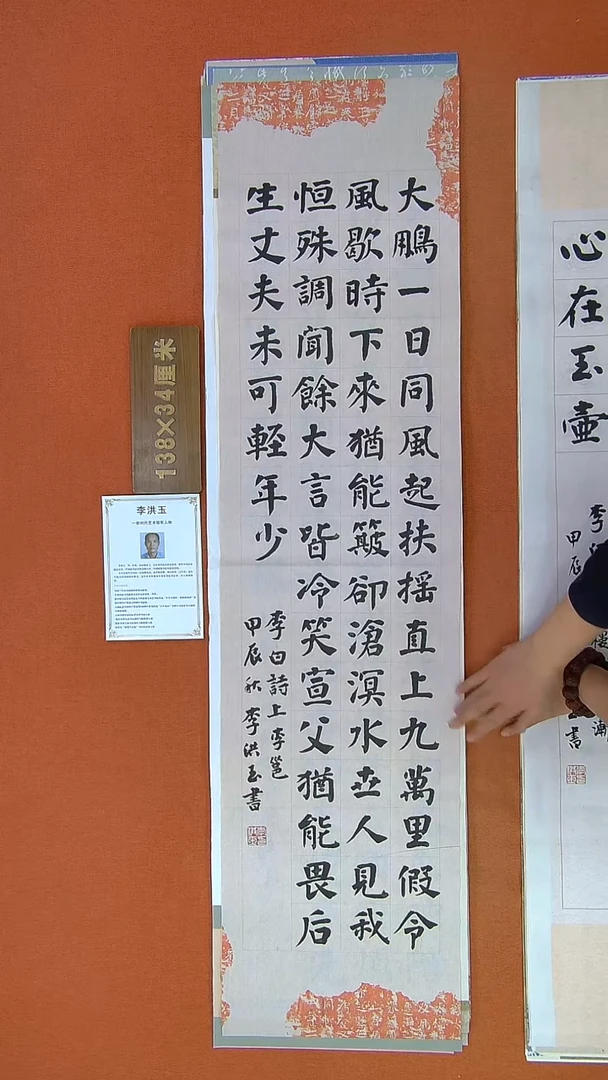 大鵬一日同風起扶摇直上九萬里假令
風歇時下來猶能簸卻滄溟水世人見我
恒殊調聞餘大言皆冷笑宣父猶能畏后
生丈夫未可輕年少
李白詩上李邕
甲辰秋李洪玉書
138×34厘米
李洪玉
心在玉壺
甲辰
書